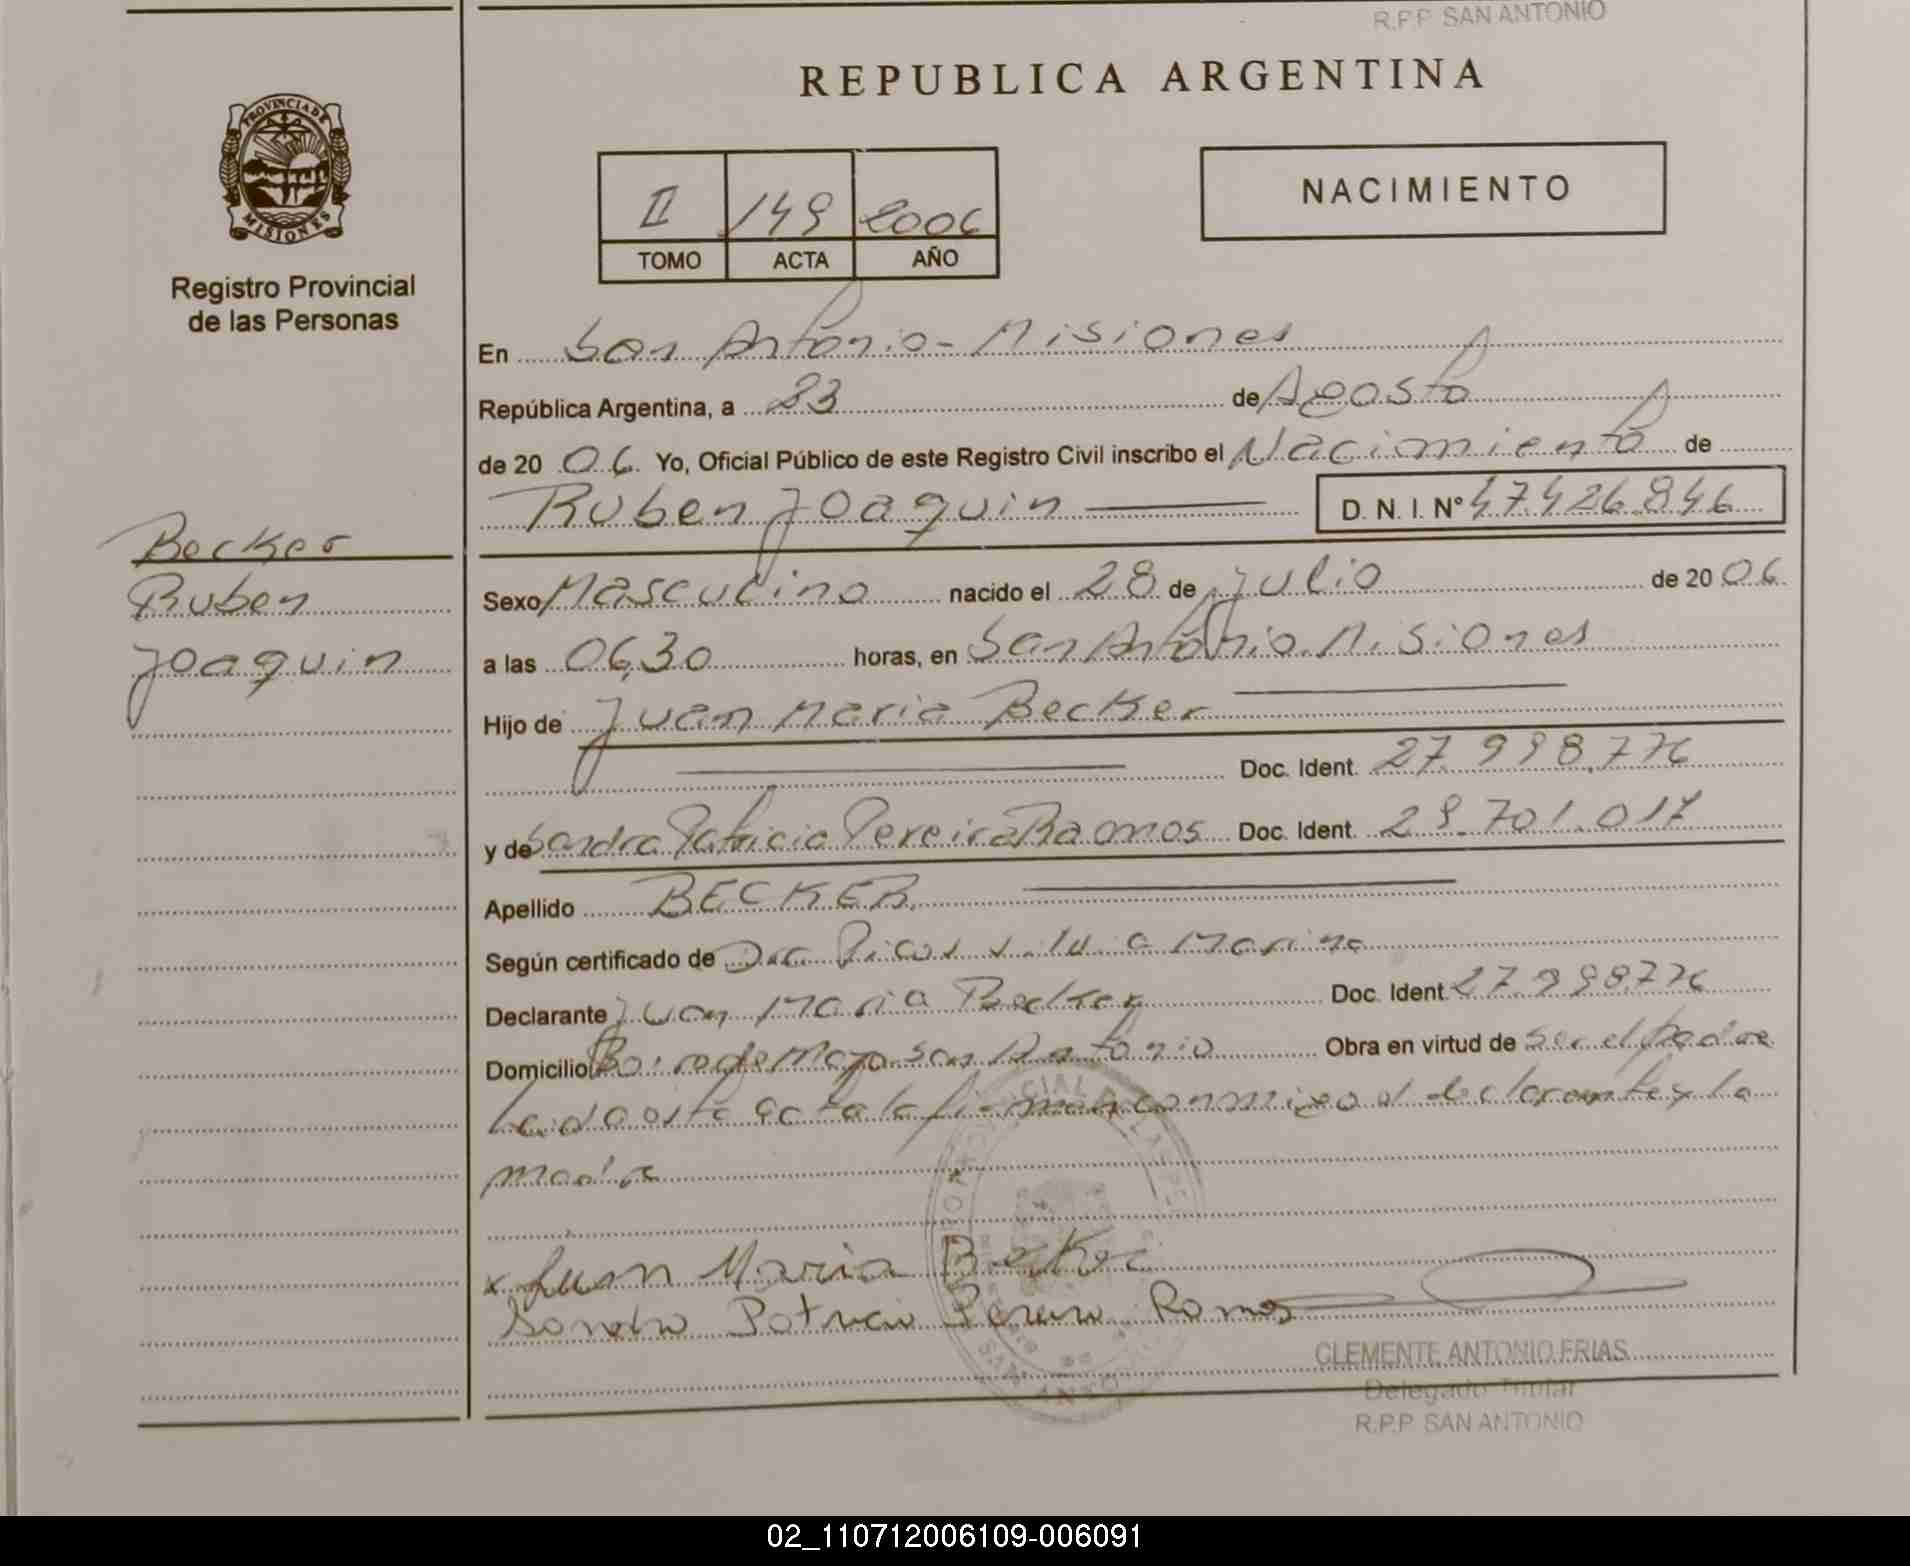 R.P.P. SAN ANTONIO
REPUBLICA ARGENTINA
PROVINCIA DE
MISIONES
Registro Provincial
de las Personas
II 149 2006
TOMO ACTA AÑO
NACIMIENTO
En San Antonio - Misiones
República Argentina, a 23 de Agosto
de 2006 Yo, Oficial Público de este Registro Civil inscribo el Nacimiento de
Ruben Joaquin D. N. I. N° 47.426.846
Becker
Ruben
Joaquin
Sexo Masculino nacido el 28 de Julio de 2006
a las 06,30 horas, en San Antonio. Misiones
Hijo de Juan Maria Becker
Doc. Ident. 27.998.776
y de Sandra Patricia Pereira Ramos Doc. Ident. 29.701.017
Apellido BECKER
Según certificado de Dra. Marina
Declarante Juan Maria Becker Doc. Ident. 27.998.776
Domicilio San Antonio Obra en virtud de ser el padre
Leida esta acta la firman conmigo el declarante y la
madre
x Juan Maria Becker
Sandra Patricia Pereira Ramos
CLEMENTE ANTONIO FRIAS
Delegado Titular
R.P.P. SAN ANTONIO
02_110712006109-006091